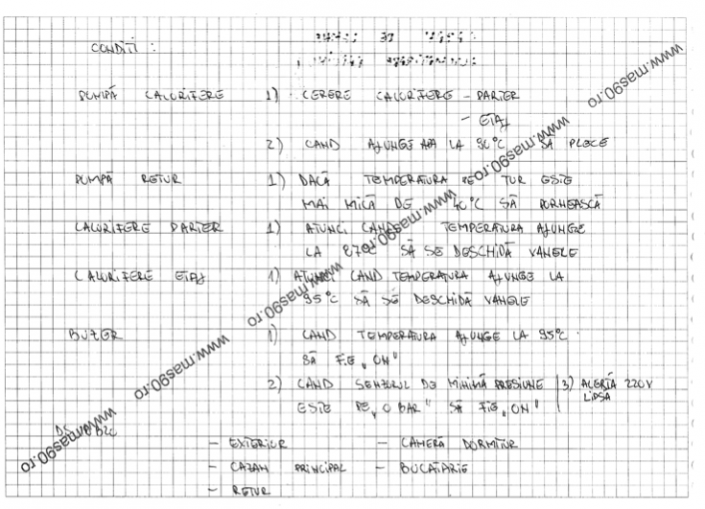 CONDITII :
POMPĂ CALORIFERE 1) CERERE CALORIFERE - PARTER
- ETAJ
2) CAND AJUNGE LA 90°C SĂ PLECE
POMPĂ RETUR 1) DACĂ TEMPERATURA TUR ESTE
MAI MICĂ DE 40°C SĂ PORNEASCĂ
CALORIFERE PARTER 1) ATUNCI CAND TEMPERATURA AJUNGE
LA 87°C SĂ SE DESCHIDĂ VANELE
CALORIFERE ETAJ 1) ATUNCI CAND TEMPERATURA AJUNGE LA
95°C SĂ SE DESCHIDĂ VANELE
BUZER 1) CAND TEMPERATURA AJUNGE LA 95°C
SĂ FIE „ON"
2) CAND SENZORUL DE MINIMĂ PRESIUNE 3) ALERTĂ 220V
ESTE PE „0 BAR" SĂ FIE „ON" LIPSA
- EXTERIOR - CAMERĂ DORMITOR
- CAZAN PRINCIPAL - BUCATARIE
- RETUR
www.mas90.ro www.mas90.ro www.mas90.ro
www.mas90.ro www.mas90.ro
www.mas90.ro